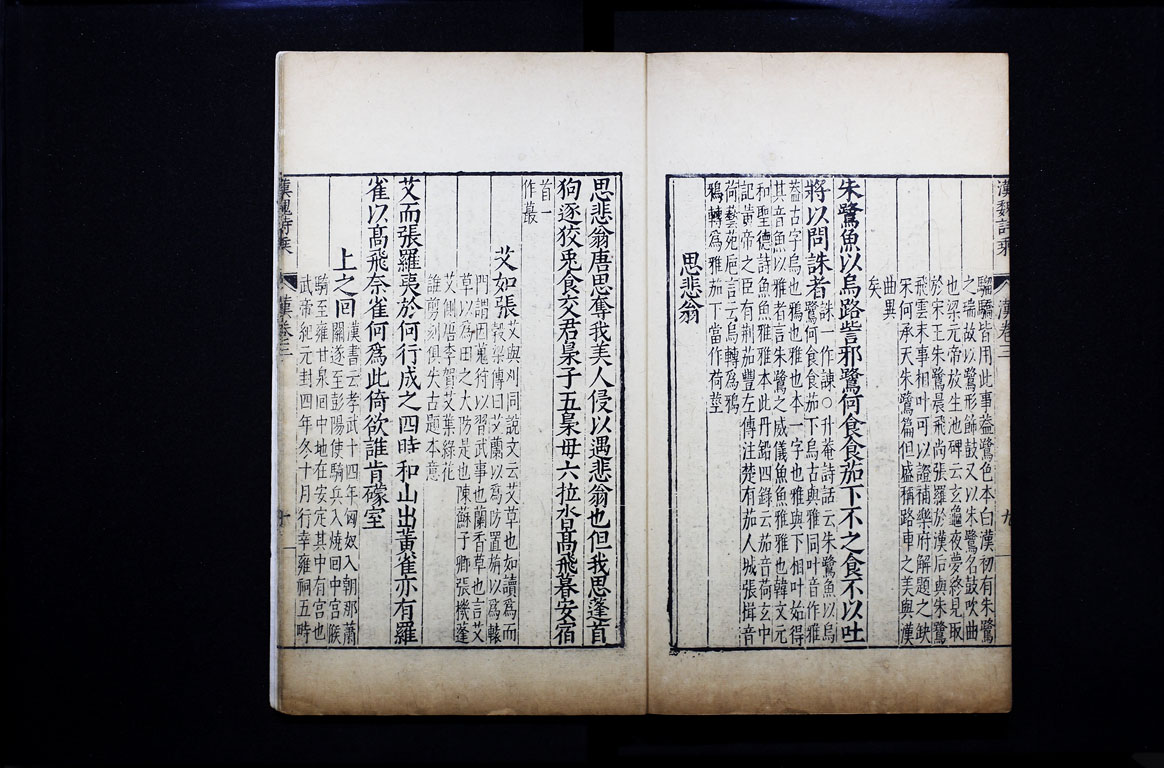 漢魏詩乘
漢卷三
九
驕驕皆用此事蓋鷺色本白漢初有朱鷺
之瑞故以鷺形飾鼓又以朱鷺名鼓吹曲
也梁元帝放生池碑云玄龜夜夢終見取
於宋王朱鷺晨飛尚張羅於漢后與朱鷺
飛雲末事相叶可以證補樂府解題之缺
宋何承天朱鷺篇但盛稱路車之美與漢
曲異
矣
朱鷺魚以烏路訾邪鷺何食食茄下不之食不以吐
將以問誅者
誅一作諫○升菴詩話云朱鷺魚以烏
鷺何食食茄下烏古與雅同叶音作雅
蓋古字烏也鴉也雅也本一字也雅與下相叶始得
其音魚以雅者言朱鷺之威儀魚魚雅雅也韓文元
和聖德詩魚魚雅雅本此丹鉛四錄云茄音荷玄中
記黃帝之臣有荆茄豐左傳注楚有茄人城張揖音
荷藝苑巵言云烏轉為鴉
鴉轉為雅茄下當作荷莖
思悲翁
思悲翁唐思奪我美人侵以遇悲翁也但我思蓬首
狗逐狡兎食交君梟子五梟母六拉沓高飛暮安宿
首一
作蕞
艾如張
艾與刈同說文云艾草也如讀為而
穀梁傳曰艾蘭以為防置旃以為轅
門謂因蒐狩以習武事也蘭香草也言艾
草以為田之大防是也陳蘇子卿張機蓬
艾側唐李賀艾葉綠花
誰剪刻俱失古題本意
艾而張羅夷於何行成之四時和山出黃雀亦有羅
雀以高飛奈雀何為此倚欲誰肯礞室
上之回
漢書云孝武十四年匈奴入朝那蕭
關逐至彭陽使騎兵入燒回中宮候
騎至雍甘泉回中地在安定其中有宮也
武帝紀元封四年冬十月行幸雍祠五畤
漢魏詩乘
漢卷三
十